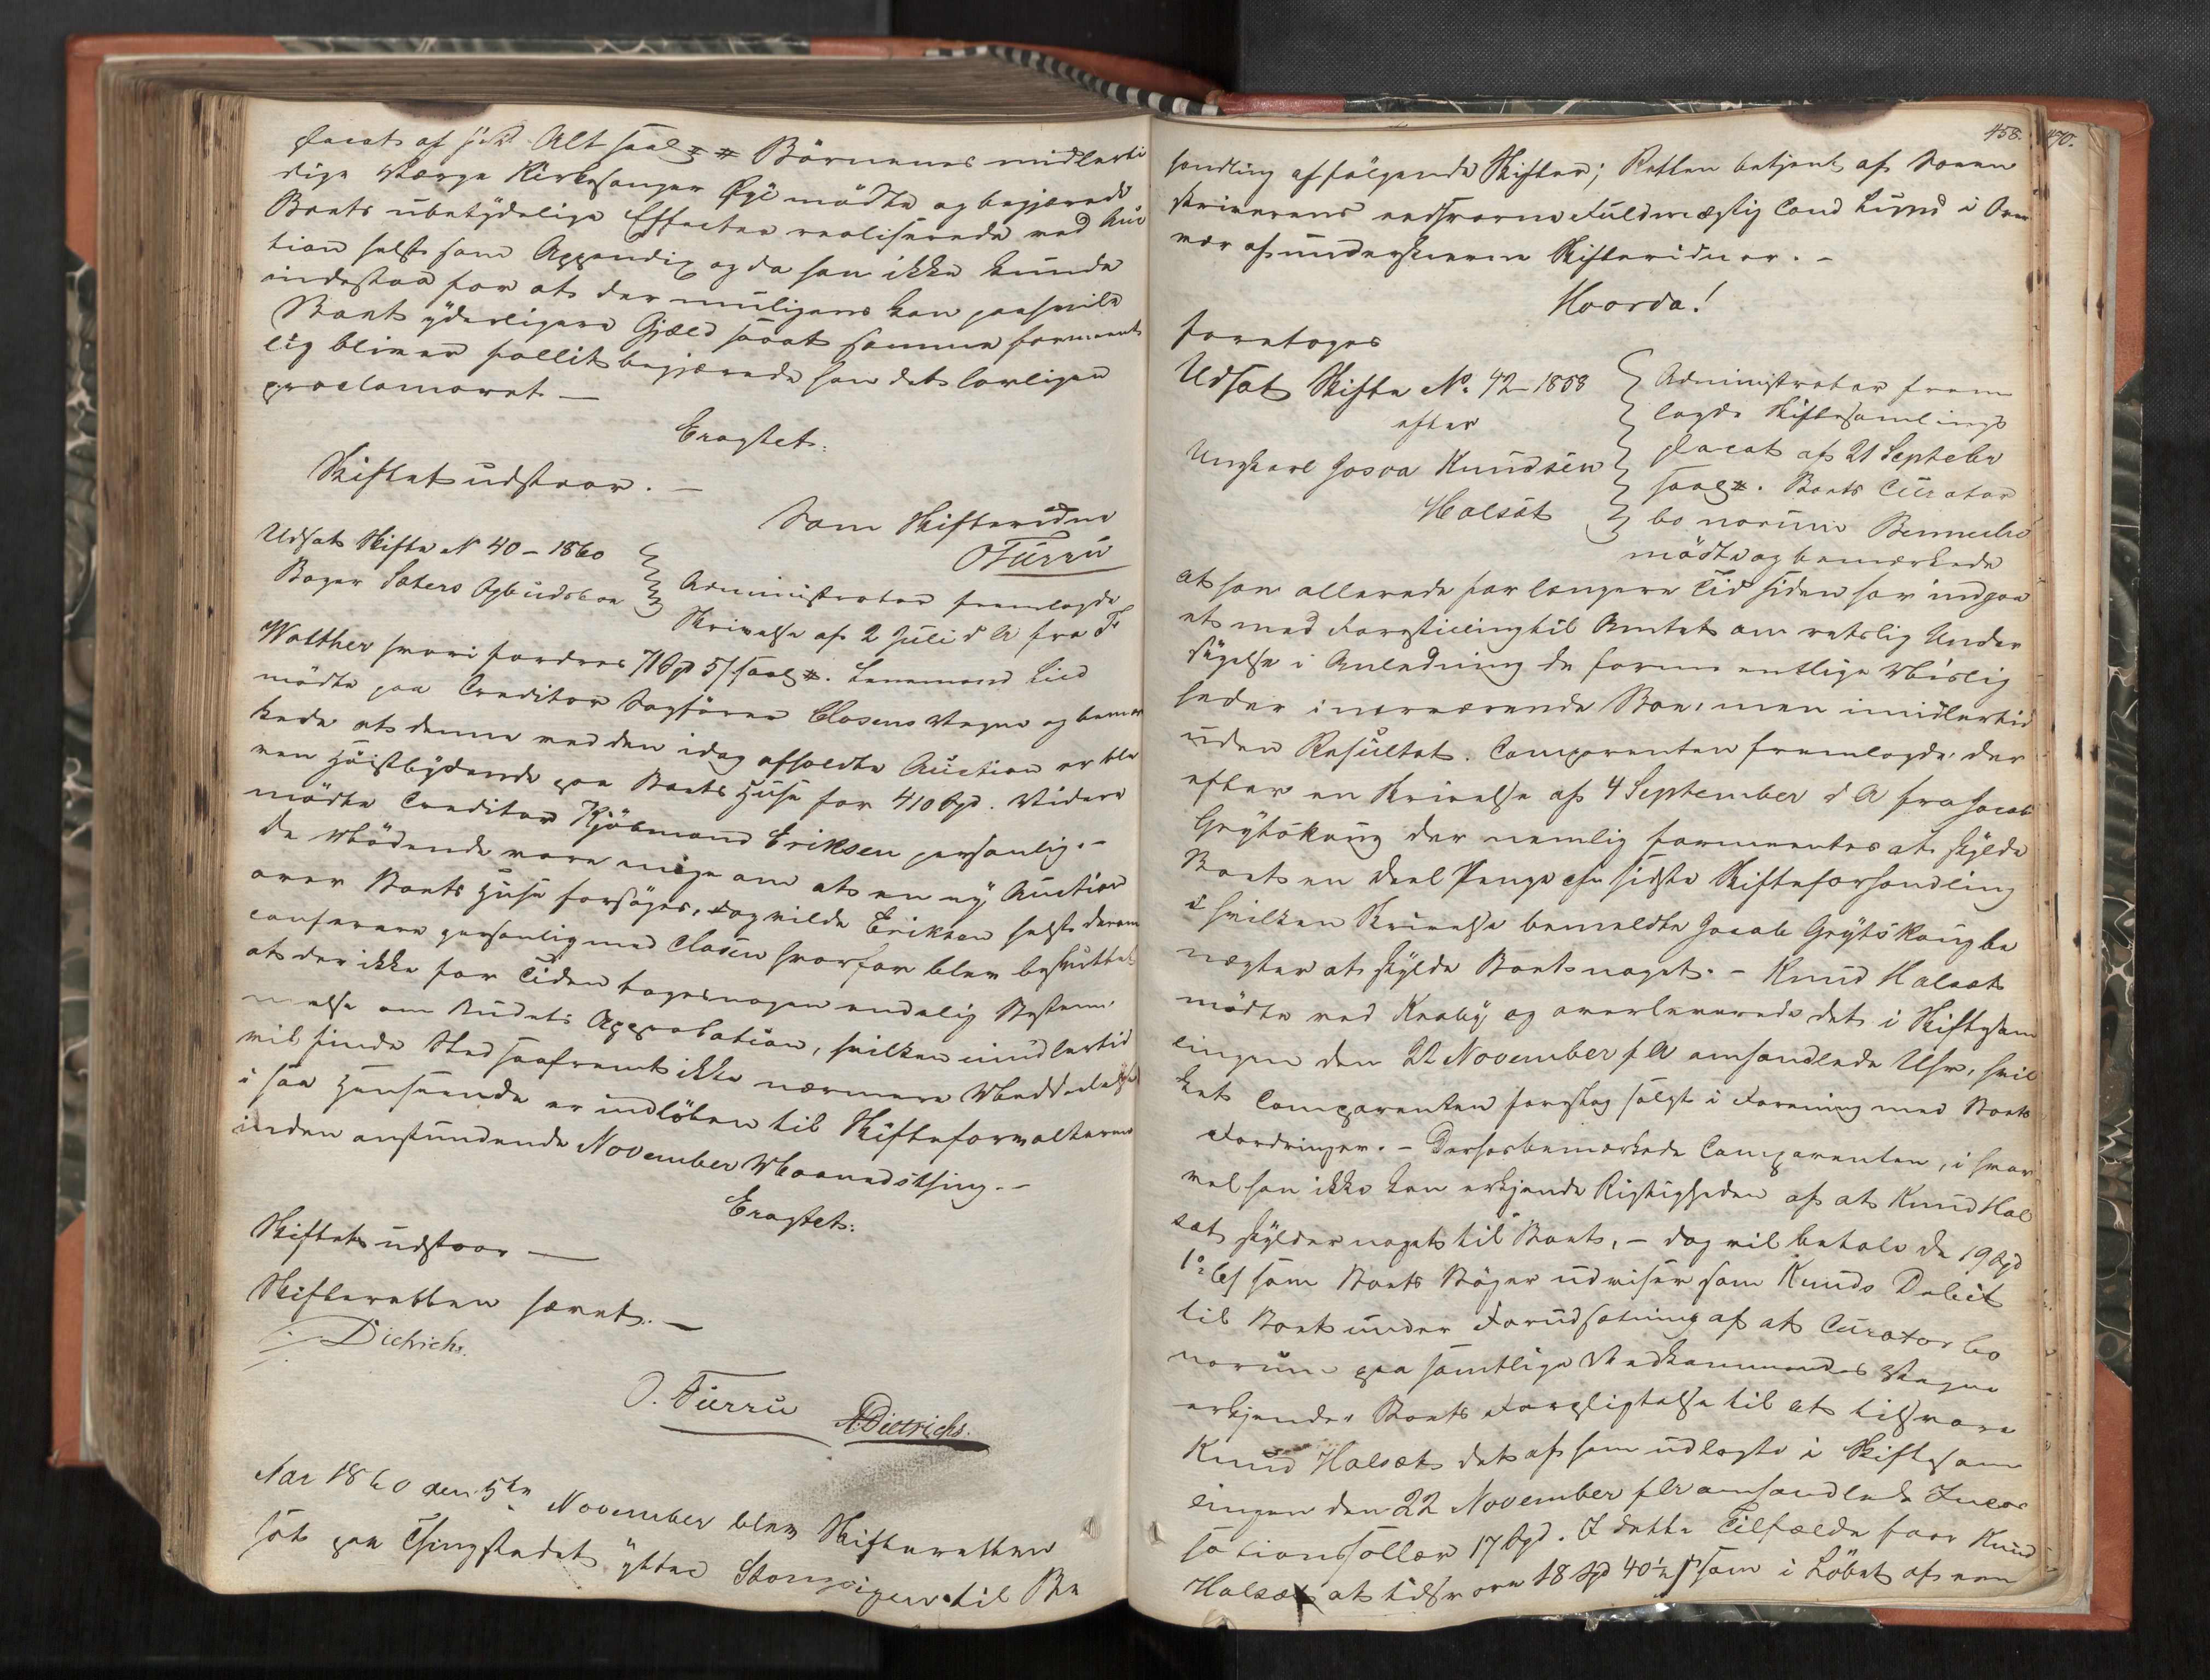 placat af s. D. Alt saal. # Börnenes midlerti
dige Værge Kirkesanger Øye mødte og begjærede
Boets ubetydelige Effecter realiserede ved Auc
tion helst som Appendix og da han ikke kunde
indestaa for at der muligens kan paahvile
Boet yderligere Gjæld saaat samme forment
lig bliver fallit begjærede han det lovligen
proclameret —
Eragtet:
Skiftet udstaar. —
Som Skifteridne
OFurru
Udsat Skifte N 40 – 1860
Bager Sæters Opbudsboe
Administrator fremlagde
Skrivelse af 2 Juli d A fra Fr
Walther hvori fordres 71 Spd 5 s saal. #. Lensmand Lied
mødte paa Creditor Sagfører Closens Vegne og bemær
kede at denne ved den idag afholdte Auction er ble
ven Høistbydende paa Boets Huse for 410 Spd. Videre
mødte Creditor Kjøbmand Eriksen personlig. –
De Mødende vare enige om at en ny Auction
over Boets Huse forsøges, dog vilde Eriksen helst derom
conferere personlig med Closen hvorfor blev besluttet
at der ikke for Tiden tages nogen endelig Bestem
melse om Budets Approbation, hvilken imidlertid
vil finde Sted saafremt ikke nærmere Meddelelse
i saa Henseende er indløben til Skifteforvalteren
inden anstundende November Maanedsthing. –
Eragtet:
Skiftet udstaar —
Skifteretten hævet. —
Dietrichs.
O. Furru ADietrichs.
Aar 1860 den 5te November blev Skifteretten
sat paa Thingstedet ytter Storvigen til Be
458. 470.
handling af følgende Skifter; Retten betjent af Soren
skriverens edsvorne Fuldmægtig Cand Lund i Over
vær af underskrevne Skifteridner. –
Hvorda!
foretoges
Udsat Skifte No. 42 – 1858
efter
Ungkarl Josva Knudsen
Halsæt
Administrator frem
lagde Skiftesamlings
placat af 21 Septebr
saal. #. Boets Curator
bonorum Bennecke
mødte og bemærkede
at han allerede for længere Tid siden har indgaa
et med Forestilling til Amtet om retslig Under
søgelse i Anledning de formeentlige Mislig
heder i nærværende Boe, men imidlertid
uden Resultat. Comparenten fremlagde der
efter en Skrivelse af 4 September d A fra Jacob
Grytskoug der nemlig formeentes at skylde
Boet en Deel Penge cfr sidste Skifteforhandling
i hvilken Skrivelse bemeldte Jacob Grytskoug be
nægter at skylde Boet noget. – Knud Halsæt
mødte ved Kaaby og overleverede det i Skiftesam
lingen den 22 November f A omhandlede Uhr, hvil
ket Comparenten foreslog solgt i Forening med Boets
Fordringer. – Derhos bemærkede Comparenten, i hvor
vel han ikke kan erkjende Rigtigheden af at Knud Hal
sæt skylder noget til Boet, – dog vil betale de 19 Spd
1 o 6 s som Boets Bøger udviser som Knuds Debit
til Boet under Forudsætning af at Curator bo
norum paa samtlige Vedkommendes Vegne
erkjender Boets Forpligtelse til at tilsvare
Knud Halsæt det af ham udlagte i Skiftesam
lingen den 22 November f A omhandlede Incas
sationssallær 17 Spd. I dette Tilfælde faar Knud
Halsæt at tilsvare 18 Spd 40½ s som i Løbet af een